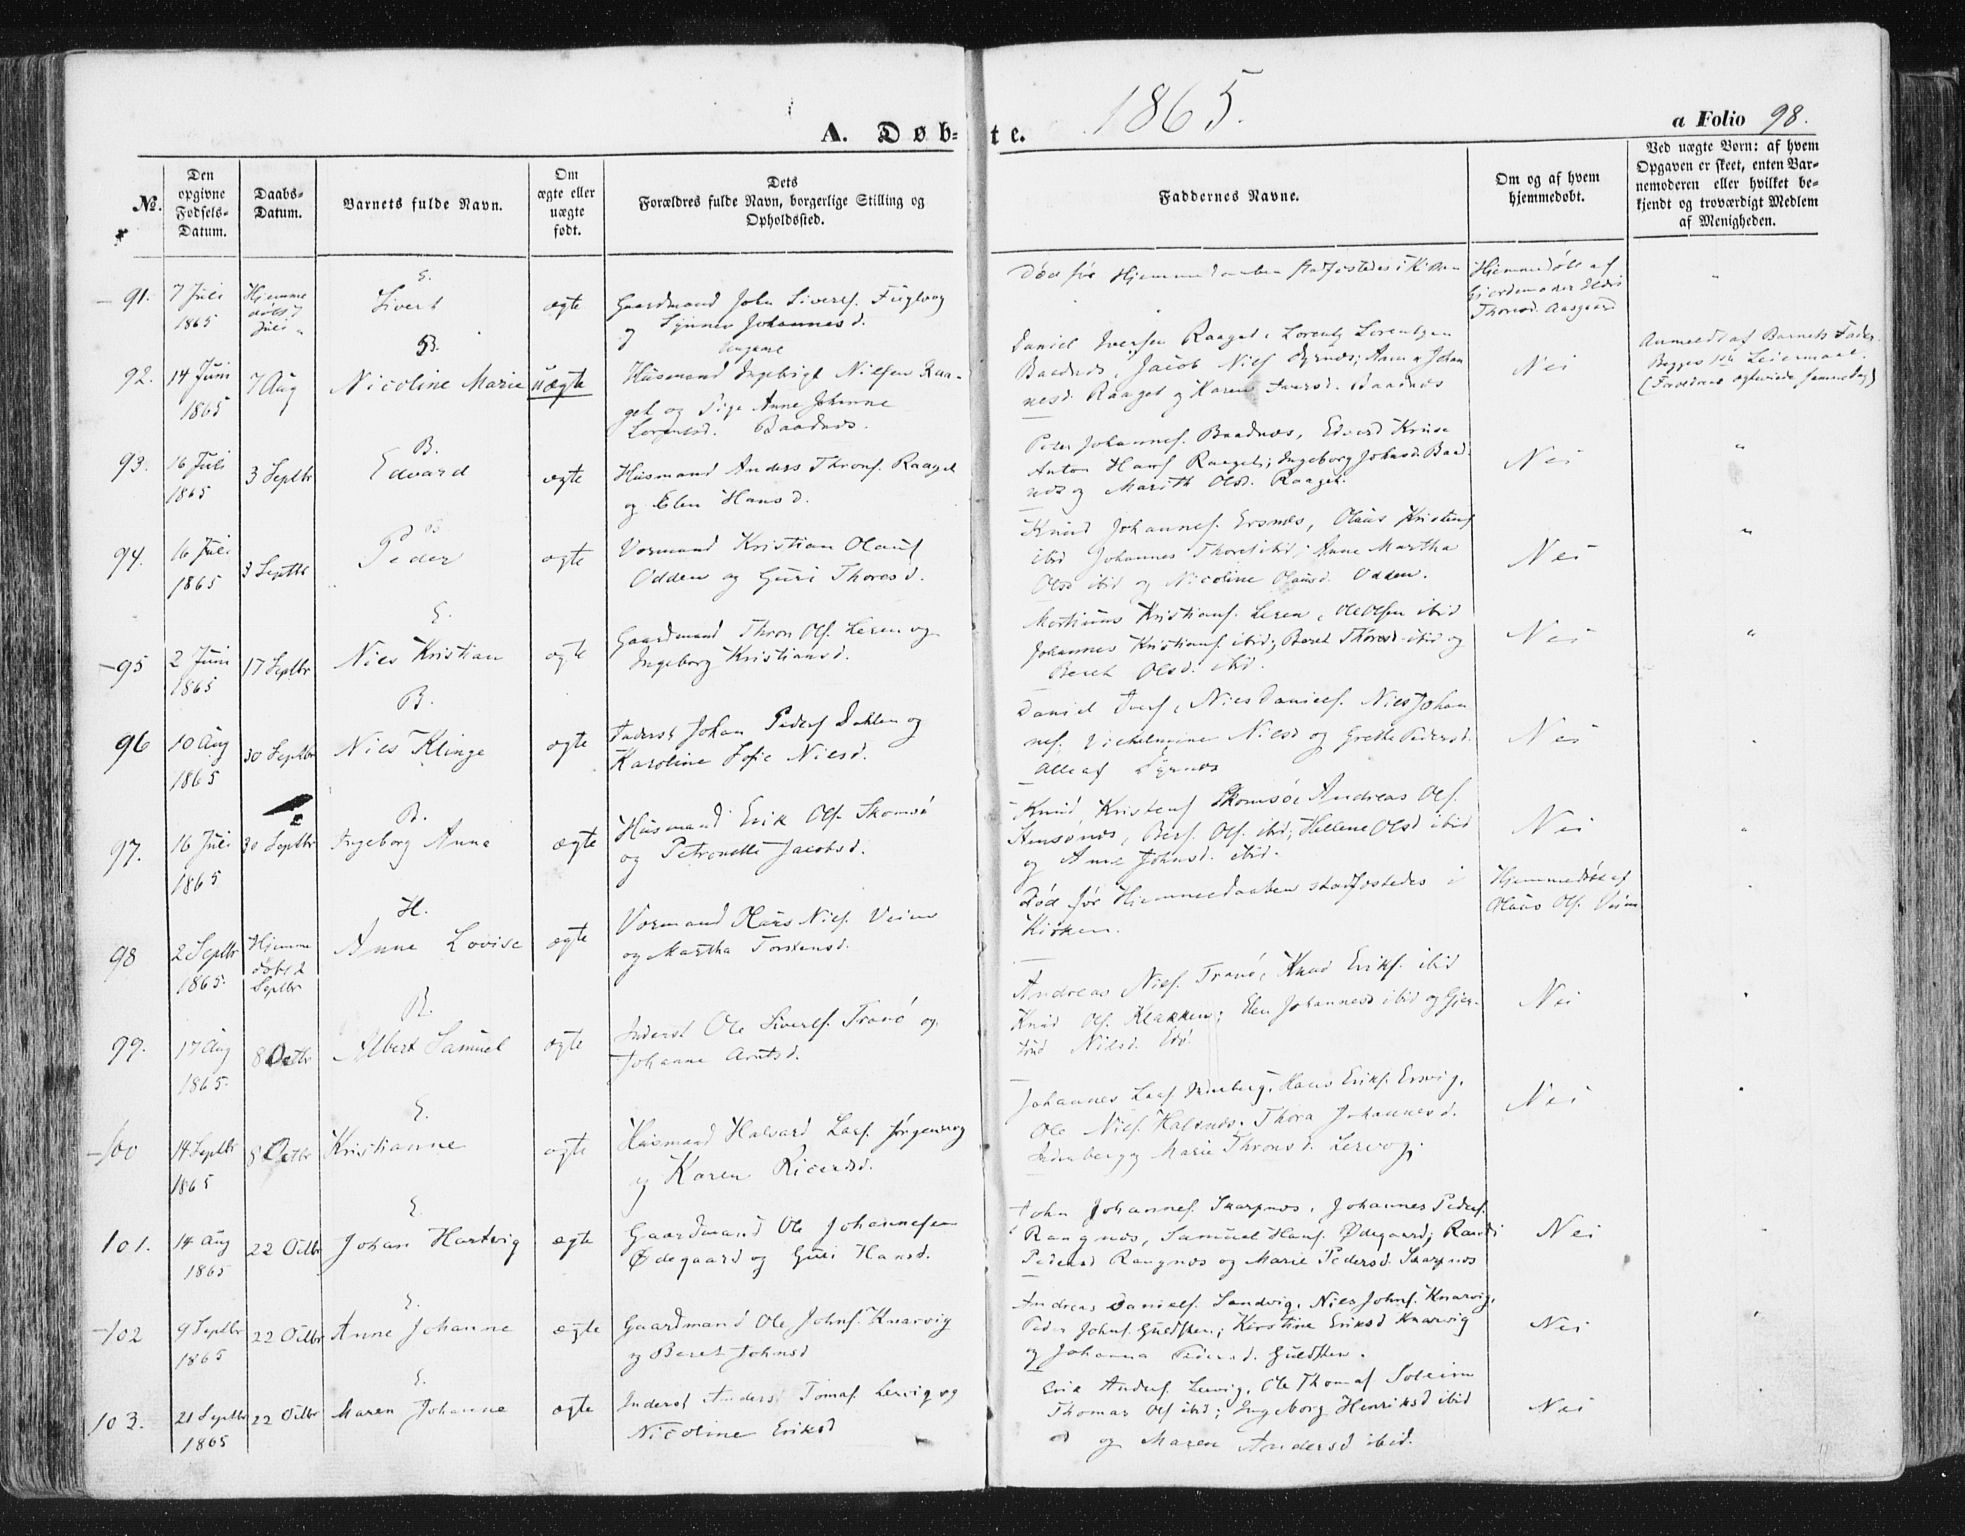 1865.
A. Døb-te.
a Folio 98.
No.
Den opgivne Fødsels-Datum.
Daabs-Datum.
Barnets fulde Navn.
Om ægte eller uægte født.
Dets Forældres fulde Navn, borgerlige Stilling og Opholdssted.
Faddernes Navne.
Om og af hvem hjemmedøbt.
Ved uægte Børn: af hvem Opgaven er skeet, enten Barnemoderen eller hvilket bekjendt og troværdigt Medlem af Menigheden.
91. 7 Juli 1865 Hjemme døbt 7 Juli
E. Sivert
ægte
Gaardmand John Sivers. Fuglvog
og Synnev Johannesd.
Død før Hjemmedaaben stadfæstedes i Kirken
Hjemmedøbt af
Gjordemoder
Thoresd. Aasgaard
92. 14 Juni 1865 7 Aug
B. Nicoline Marie
uægte
Ungkarl
Husmand Ingebrigt Nilsen Raa-
get og Pige Anne Johanne
Lorentsd. Baadnæs.
Daniel Iversen Raaget, Lorentz Lorentzen
Baadnæs, Jacob Niels. Dyrnæs; Anna Johan
nesd. Raaget og Karen Iversd. Baadnæs
Nei
Anmeldt af Barnets Fader.
Begges 1ste Leiermaal.
93. 16 Juli 1865 3 Septbr
B. Edvard
ægte
Husmand Anders Throns. Raaget
og Elen Hansd.
Peter Johannes. Baadnæs, Edvard Kruse
Anton Hans. Raaget; Ingeborg Johnsd. Baad-
næs og Marith Olsd. Raaget.
Nei
94. 16 Juli 1865 3 Septbr
B Peder
ægte
Vormand Kristian Olaus.
Odden og Guri Thoresd.
Knud Johannes. Ersnæs, Olaus Kristens.
ibid Johannes Thores. ibid; Anne Martha
Olsd ibid og Nicoline Olausd. Odden.
Nei
95 2 Juni 1865 17 Septbr
E. Niels Kristian
ægte
Gaardmand Thron Ols. Leren og
Ingeborg Kristiansd.
Martinus Kristians. Leren, Ole Olsen ibid
Johannes Kristians. ibid; Beret Thoresd. ibid og
Beret Olsd. ibid.
Nei
96 10 Aug 1865 30 Septbr
B. Niels Klinge
ægte
Inderst Johan Peders. Dahlen og
Karoline Sofie Nielsd.
Daniel Ivers., Niels Daniels. Niels Johan
nes. Vilhelmine Nielsd og Grethe Pedersd.
Alle af Dyrnæs
Nei
97. 16 Juli 1865 30 Septbr
B. Ingeborg Anna
ægte
Husmand Erik Ols. Skomsø
og Petronelle Jacobsd.
Knud Kristens. Skomsøe Andreas Ols.
ibid; Hellene Olsd ibid
og Anne Johnsd. ibid.
Nei
98 2 Septbr 1865. Hjemme døbt 2 Septbr
H. Anne Lovise
ægte
Vormand Klaus Niels. Veien
og Martha Torstensd.
Død før Hjemmedaaben stadfæstedes i
Kirken.
Hjemmedøbt af
Olaus Ols. Veien
99. 17 Aug 1865. 8 Octbr
B. Albert Samuel
ægte
Inderst Ole Siverts. Tranø og
Johanne Arntsd.
Andreas Niels. Tranø, Knud Eriks. ibid
Knud Ols. Klakken; Elen Johannesd ibid og Gjer-
trud Nielsd. Edø.
Nei
100 14 Septbr 1865 8 Octbr
E. Kristianne
ægte
Husmand Halvard Lars. Jørgenvog
og Karen Ricertsd.
Johannes Lars. Inderberg, Hans Eriks. Ersvig,
Ole Niels. Halsnæs, Thora Johannesd.
Inderberg og Marie Thronsd. Lervog.
Nei
101. 14 Aug 1865 22 Octbr
E. Johan Hartvig
ægte
Gaardmand Ole Johannesen
Ødegaard og Guri Hansd.
John Johannes. Skarpnæs, Johannes Peders.
Rangnæs, Samuel Hans. Ødegaard; Randi
Pedersd Rangnæs og Marie Pedersd. Skarpnæs
Nei
102 9 Septbr 1865 22 Octbr
E. Anne Johanne
ægte
Gaardmand Ole Johns. Knarvig
og Beret Johnsd
Andreas Daniels. Sandvig, Niels Johns. Knarvig,
Peder Johns. Guldsten; Kirstine Eriksd Knarvig
og Johanna Pedersd. Guldsten.
Nei
103. 21 Septbr 1865 22 Octbr
E. Maren Johanne
ægte
Inderst Anders Tomas. Lervig og
Nicoline Eriksd
Erik Anders. Lervig, Ole Thomas. Soleim
Thomas Ols ibid; Ingeborg Henriksd ibid
og Maren Andersd ibid.
Nei